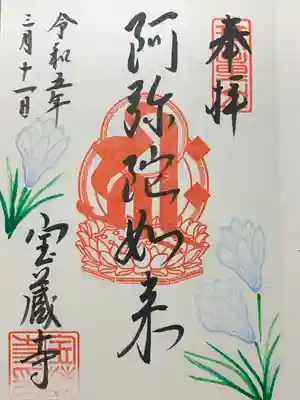 奉拝
阿弥陀如来
令和五年
三月十一日
宝蔵寺